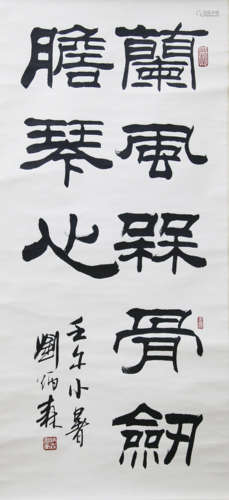 蘭風槑骨劒
膽琴心
壬午小暑
劉炳森